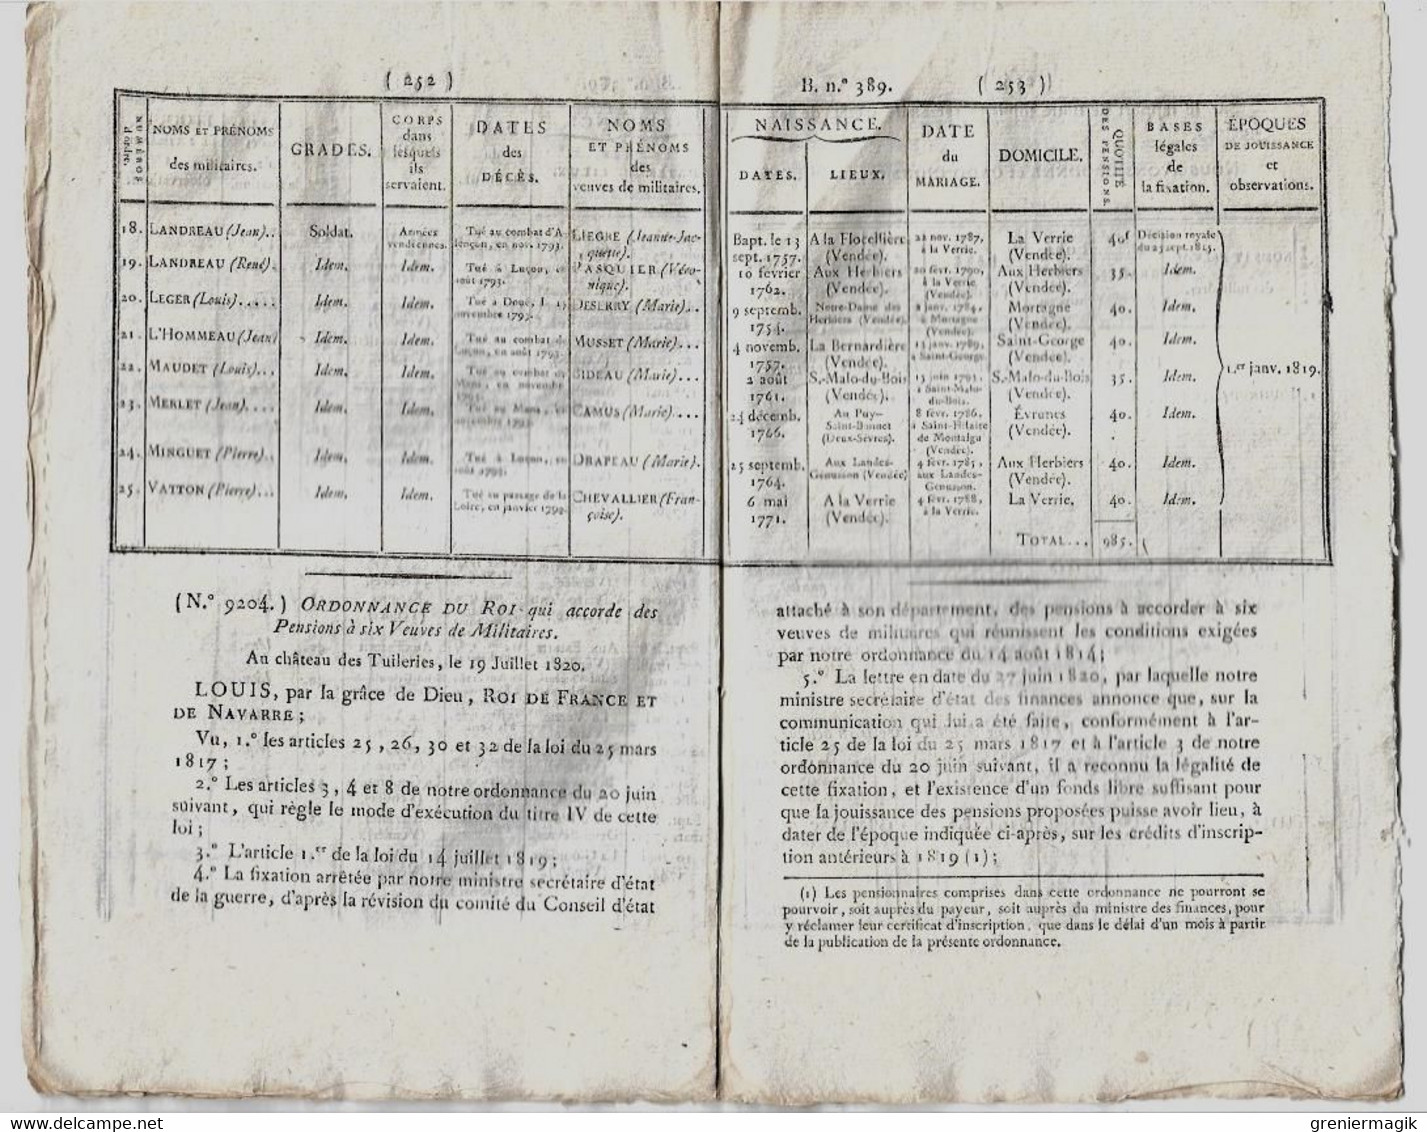 ( 252 )
NUMÉROS d'ordre.
NOMS ET PRÉNOMS des militaires.
GRADES.
CORPS dans lesquels ils servaient.
DATES des DÉCÈS.
NOMS ET PRÉNOMS des veuves de militaires.
18. LANDREAU (Jean).. Soldat. Armées vendéennes. Tué au combat d'Alençon, en nov. 1793. LIEGRE (Jeanne-Jacquette).
19. LANDREAU (René). Idem. Idem. Tué à Luçon, en août 1793. PASQUIER (Véronique).
20. LEGER (Louis)..... Idem. Idem. Tué à Doué, novembre 1793. DESERRY (Marie)..
21. L'HOMMEAU (Jean) Idem. Idem. Tué au combat de Luçon, en août 1793. MUSSET (Marie)...
22. MAUDET (Louis)... Idem. Idem. Tué au combat du Mans, en novembre BIDEAU (Marie)...
23. MERLET (Jean).... Idem. Idem. Tué au Mans, CAMUS (Marie)....
24. MINGUET (Pierre).. Idem. Idem. Tué à Luçon, en août 1793. DRAPEAU (Marie).
25. VATTON (Pierre)... Idem. Idem. Tué au passage de la Loire, en janvier 179 CHEVALLIER (Françoise).
(N.° 9204.) ORDONNANCE DU ROI qui accorde des
Pensions à six Veuves de Militaires.
Au château des Tuileries, le 19 Juillet 1820.
LOUIS, par la grâce de Dieu, ROI DE FRANCE ET
DE NAVARRE;
Vu, 1.° les articles 25, 26, 30 et 32 de la loi du 25 mars
1817;
2.° Les articles 3, 4 et 8 de notre ordonnance du 20 juin
suivant, qui règle le mode d'exécution du titre IV de cette
loi;
3.° L'article 1.er de la loi du 14 juillet 1819;
4.° La fixation arrêtée par notre ministre secrétaire d'état
de la guerre, d'après la révision du comité du Conseil d'état
B. n.° 389. ( 253 )
NAISSANCE.
DATES.
LIEUX.
DATE du MARIAGE.
DOMICILE.
QUOTITÉ DES PENSIONS.
BASES légales de la fixation.
ÉPOQUES DE JOUISSANCE et observations.
Bapt. le 13 sept. 1757. A la Flocellière (Vendée). 22 nov. 1787, à la Verrie. La Verrie (Vendée). 40f Décision royale du 25 sept. 1815.
10 février 1762. Aux Herbiers (Vendée). 20 fév. 1790, à la Verrie (Vendée). Aux Herbiers (Vendée). 35. Idem.
9 septemb. 1754. Notre-Dame des Herbiers (Vendée). 8 janv. 1784, à Mortagne (Vendée). Mortagne (Vendée). 40. Idem.
4 novemb. 1757. La Bernardière (Vendée). 13 janv. 1789, à Saint-George Saint-George (Vendée). 40. Idem.
2 août 1761. S.-Malo-du-Bois (Vendée). 15 juin 1793, à Saint-Malo-du-Bois. S.-Malo-du-Bois (Vendée). 35. Idem.
24 décemb. 1766. Au Puy-Saint-Bonnet (Deux-Sèvres). 8 févr. 1786, à Saint-Hilaire de Montalgu (Vendée). Évrunes (Vendée). 40. Idem.
25 septemb. 1764. Aux Landes-Genusson (Vendée) 4 févr. 1785, aux Landes-Genusson. Aux Herbiers (Vendée). 40. Idem.
6 mai 1771. A la Verrie (Vendée). 4 févr. 1788, à la Verrie. La Verrie. 40. Idem.
1.er janv. 1819.
TOTAL... 985.
attaché à son département, des pensions à accorder à six
veuves de militaires qui réunissent les conditions exigées
par notre ordonnance du 14 août 1814;
5.° La lettre en date du 27 juin 1820, par laquelle notre
ministre secrétaire d'état des finances annonce que, sur la
communication qui lui a été faite, conformément à l'ar-
ticle 25 de la loi du 25 mars 1817 et à l'article 3 de notre
ordonnance du 20 juin suivant, il a reconnu la légalité de
cette fixation, et l'existence d'un fonds libre suffisant pour
que la jouissance des pensions proposées puisse avoir lieu, à
dater de l'époque indiquée ci-après, sur les crédits d'inscrip-
tion antérieurs à 1819 (1);
(1) Les pensionnaires comprises dans cette ordonnance ne pourront se
pourvoir, soit auprès du payeur, soit auprès du ministre des finances, pour
y réclamer leur certificat d'inscription, que dans le délai d'un mois à partir
de la publication de la présente ordonnance.
www.delcampe.net
greniermagik